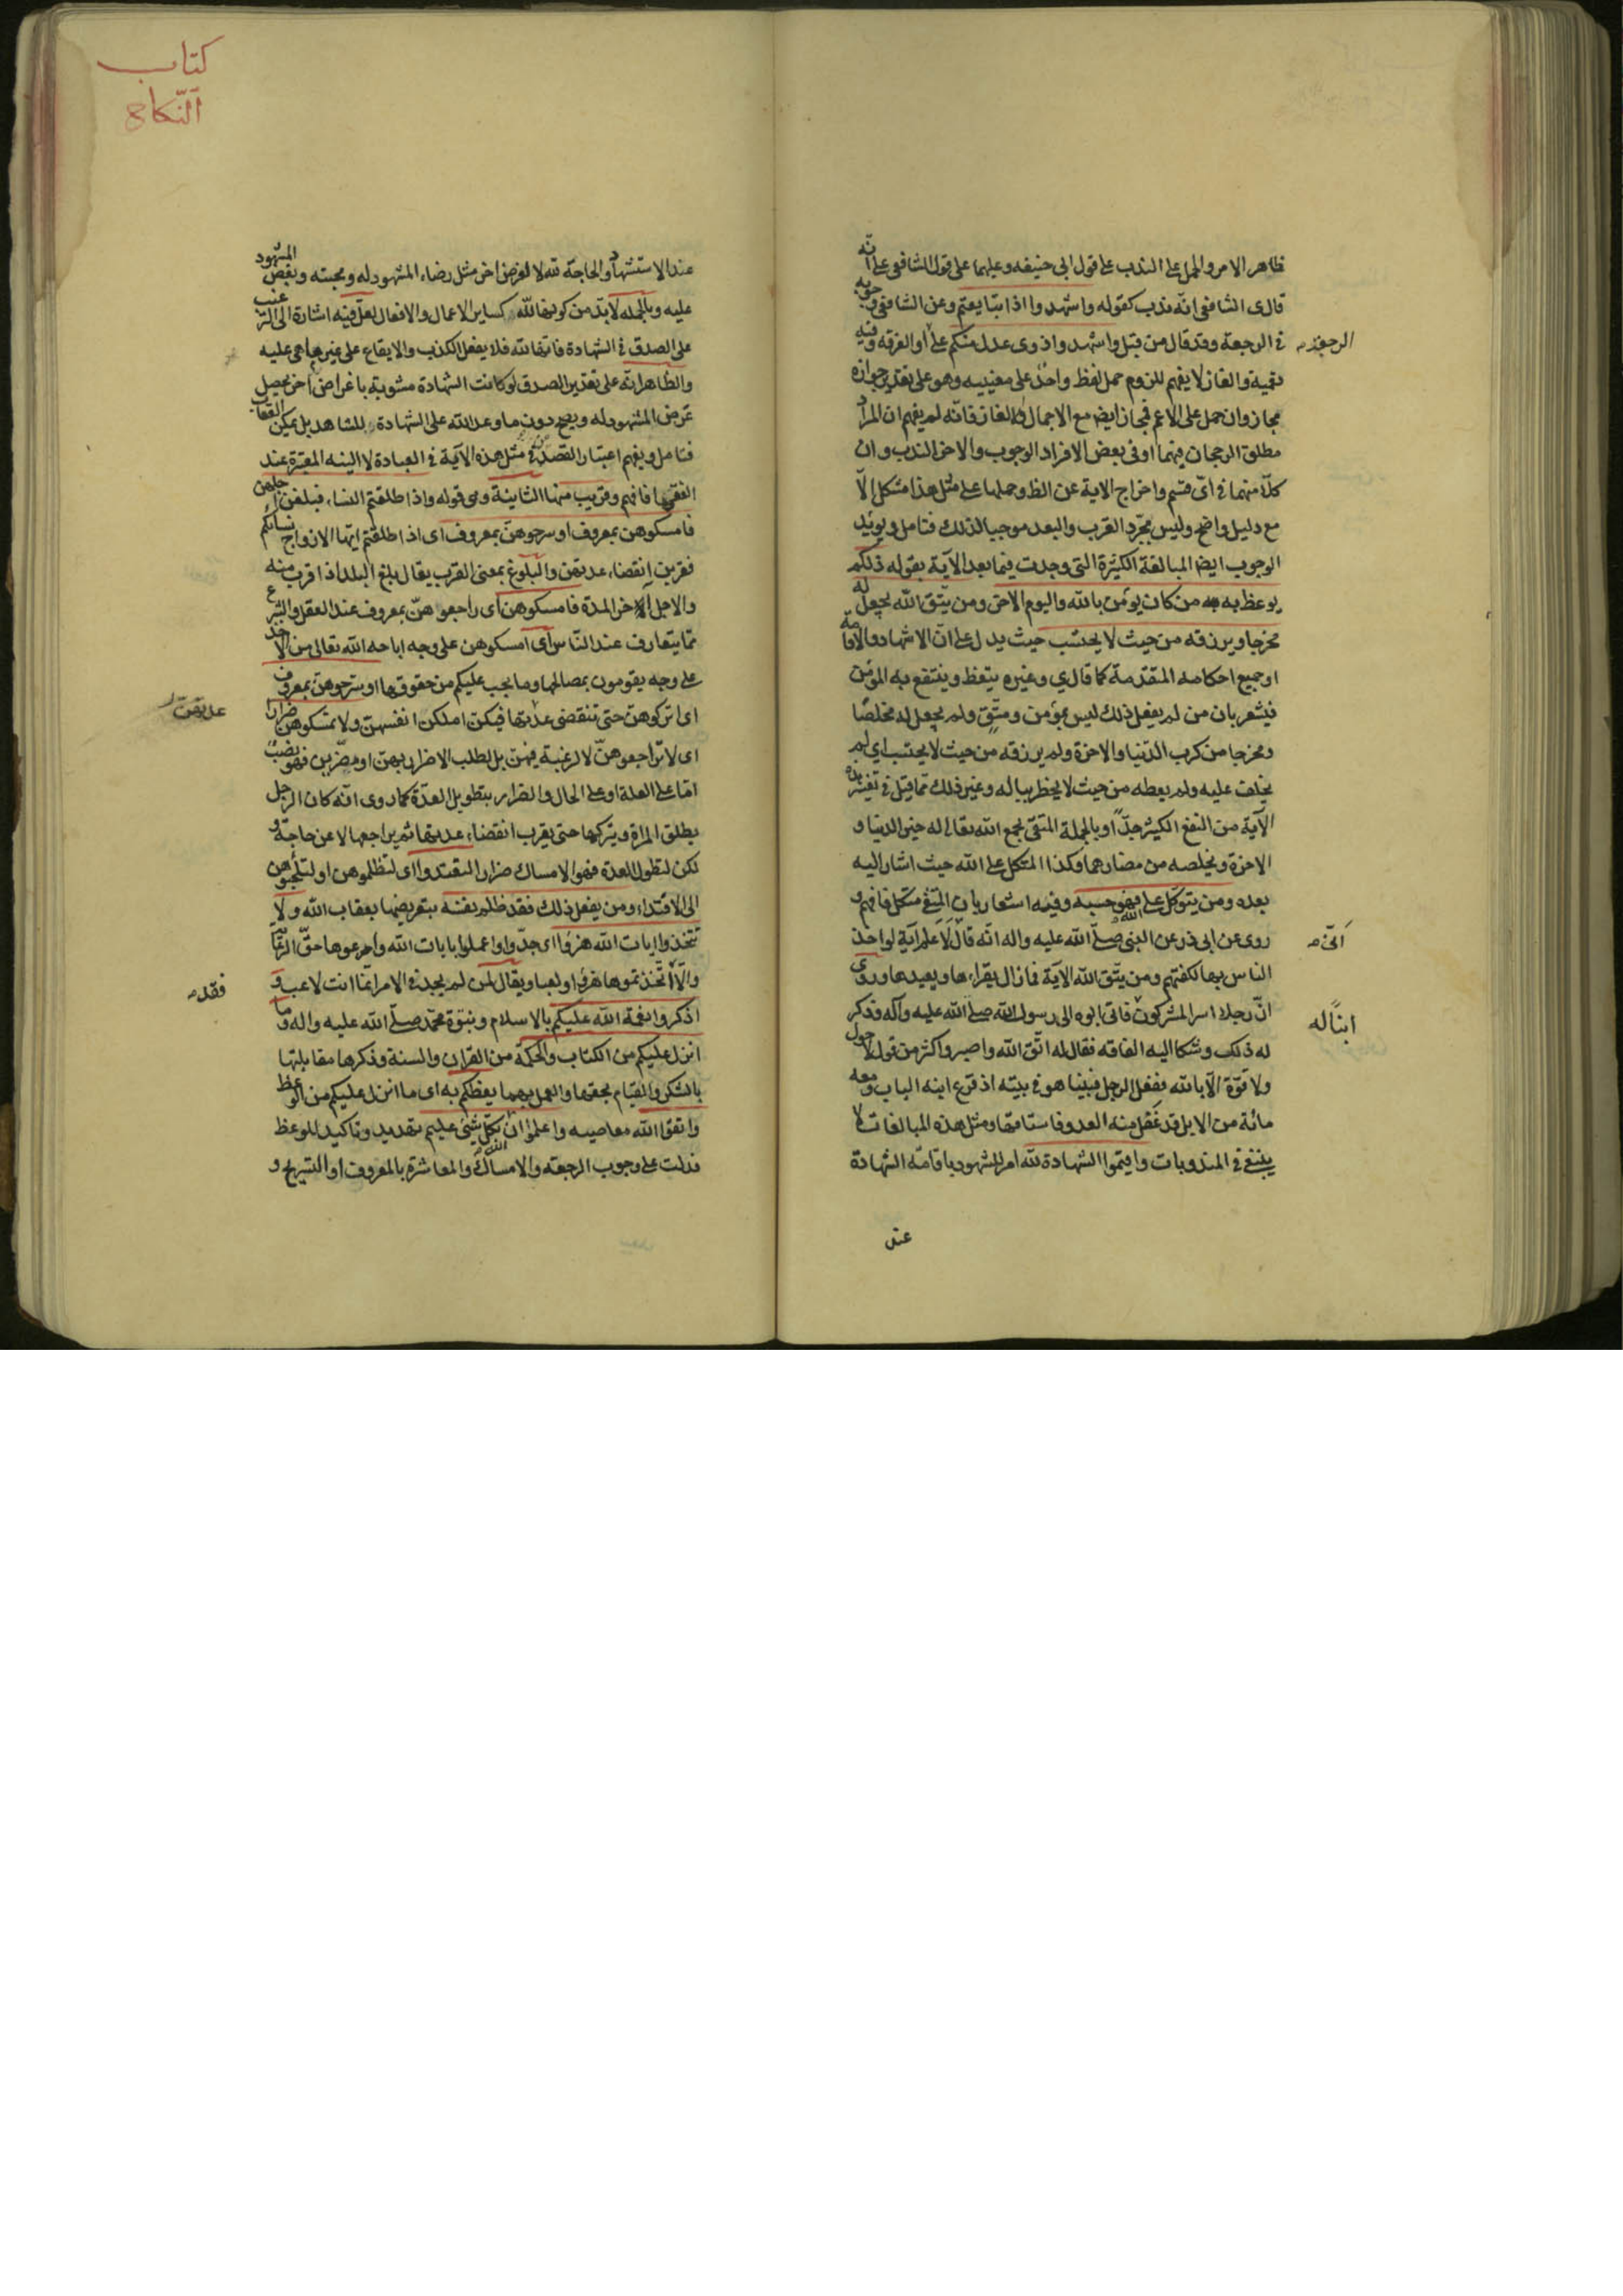 ظاهر الامر والحمل على الندب على قول ابى حنيفه وعليهما على قول الشافعى على انّه
قال ى الشافعى انّه ندب كقوله واشهدوا اذا تبايعتم وعن الشافعى وجوبه
فى الرجعة وقد قال من قبل واشهدوا ذوى عدل منكم على او الفرقه وفيه
الرجعة
تعمية والغاز لا يفهم للزوم حمل لفظ واحد على معنييه وهو على تقدير جوازه
مجاز وان حمل على الاعم فمجاز ايضا مع الاجمال والالغاز فانّه لم يفهم ان المراد
مطلق الرجحان فيهما او فى بعض الافراد الوجوب والاخر الندب وان
كلّا منهما فى اىّ قسم واخراج الاية عن الظ وحملها على مثل هذا مشكل الّا
مع دليل واضح وليس بمجرّد القرب والبعد موجبا لذلك فتامل ويؤيد
الوجوب ايضا المبالغة الكثيرة التى وجدت فيما بعد الآية بقوله ذلكم
يوعظ به من كان يؤمن بالله واليوم الاخر ومن يتّق الله يجعل له
مخرجا ويرزقه من حيث لا يحتسب حيث يدل على انّ الاشهاد والاقامة
او جميع احكامه المتقدمة كما قال ي وغيره يتعظ وينتفع به المؤمن
فيشعر بان من لم يفعل ذلك ليس بمؤمن ومتّق ولم يجعل له مخلصًا
ومخرجا من كرب الدّنيا والاخرة ولم يرزقه من حيث لا يحتسب اى لم
يخلف عليه ولم يعطه من حيث لا يخطر بباله وغير ذلك ممّا قيل فى تفسير هذه
الآية من النفع الكثير جدًّا وبالجملة المتقى يجمع الله تعالى له خير الدنيا و
الاخرة ويخلصه من مضارهما وكذا المتكل على الله حيث اشار اليه
بعده ومن يتوكّل على الله فهو حسبه وفيه اشعار بان المتقى متكل فافهم و
روى عن ابى ذر عن النبى صلّى الله عليه واله انّه قال لا علم آية لو اخذ
انّى
الناس بها لكفتهم ومن يتّق الله الآية فما زال يقراءها ويعيدها وروى
انّ رجلا اسر المشركون فاتى ابوه الى رسول الله صلّى الله عليه وآله وذكر
ابنًا له
له ذلك وشكا اليه الفاقه فقال له اتّق الله واصبر واكثر من قول لا حول
ولا قوّة الّا بالله ففعل الرجل فبينا هو فى بيته اذ قرع ابنه الباب ومعه
مائة من الابل قد غفل منه العدو فاستاقها ومثل هذه المبالغات لا
ينبغى فى المندوبات واقيموا الشهادة لله امر للشهود باقامة الشهادة
عند
كتاب
النّكاح
عند الاستشهاد والحاجة لله لا لغرض اخر مثل رضاء المشهود له ومحبته وبغض المشهود
عليه وبالجمله لا بدّ من كونها لله كساير الاعمال والافعال لعلّ فيه اشارة الى الترغيب
على الصدق فى الشهادة فانّها لله فلا يفعل الكذب والايقاع على غير ما هى عليه
والظاهر انّه على تقدير الصدق لو كانت الشهادة مشوبة باغراض اخر يحصل
غرض المشهود له ويصح دون ما وعد الله على الشهادة للشاهد بل يمكن العقاب
فتامل ويفهم اعتبار القصد فى مثل هذه الآية فى العبادة لا النيه المعتبرة عند
الفقهاء فافهم وقريب منها الثانية وهى قوله واذا طلقتم النساء فبلغن اجلهن
فامسكوهن بمعروف او سرحوهنّ بمعروف اى اذا طلقتم ايّها الازواج نسائكم
فقربن انقضاء عدتهن والبلوغ بمعنى القرب يقال بلغ البلد اذا قرب منه
والاجل آخر المدة فامسكوهن اى راجعوهنّ بمعروف عند العقل والشرع
ممّا يتعارف عند النّاس اى امسكوهن على وجه اباحه الله تعالى من الاخذ
على وجه يقومون بمصالحها وما يجب عليكم من حقوقها او سرّحوهنّ بمعروف
اى اتركوهنّ حتى تنقضى عدتها فيكنّ املكن انفسهنّ ولا تمسكوهنّ ضرارا
عدتهنّ
اى لا تراجعوهنّ لا لرغبة فيهنّ بل لطلب الاضرار بهنّ او مضرّين فهو نصب
امّا على العلة او على الحال والضرار بتطويل العدّة كما روى انّه كان الرجل
يطلق المراة ويتركها حتى يقرب انقضاء عدتها ثم يراجعها لا عن حاجة و
لكن لتطول العدة فهو الامساك ضرارا لتعتدوا اى لتظلموهن او لتلجؤهن
الى الافتداء ومن يفعل ذلك فقد ظلم نفسه بتعريضها بعقاب الله ولا
تتّخذوا ايات الله هزؤا اى جدّوا واعملوا بايات الله وارعوها حقّ الرعاية
والّا اتّخذتموها هزؤا ولعبا ويقال لمن لم يجد فى الامر انّما انت لاعب و
فقد
اذكروا نعمة الله عليكم بالاسلام ونبوّة محمّد صلّى الله عليه واله وما
انزل عليكم من الكتاب والحكمة من القران والسنة وذكرها مقابلتها
بالشكر والقيام بحقها والعمل بهما يعظكم به اى ما انزل عليكم من الوعظ
واتقوا الله معاصيه واعلموا ان الله بكلّ شئ عليم تهديد وتاكيد للوعظ
فدلت على وجوب الرجعة والامساك والمعاشرة بالمعروف او التسريح و